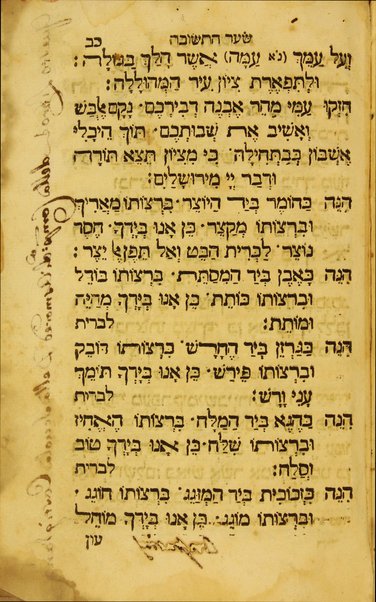 שער התשובה כב
וְעַל עַמְּךָ (נ״א עַמָּהּ) אֲשֶׁר הָלַךְ בַּגּוֹלָה:
וּלְתִפְאֶרֶת צִיּוֹן עִיר הַמְּהוּלָּלָה:
חִזְקוּ עַמִּי מַהֵר אֶבְנֶה דְּבִירְכֶם· נָקָם אֶלְבַּשׁ
וְאָשִׁיב אֶת שְׁבוּתְכֶם· תּוֹךְ הֵיכָלִי
אֶשְׁכּוֹן כְּבַתְּחִילָּה· כִּי מִצִּיּוֹן תֵּצֵא תוֹרָה
וּדְבַר יְיָ מִירוּשָׁלָיִם:
הִנֵּה כַּחוֹמֶר בְּיַד הַיּוֹצֵר· בִּרְצוֹתוֹ מַאֲרִיךְ
וּבִרְצוֹתוֹ מְקַצֵּר· כֵּן אָנוּ בְּיָדְךָ חֶסֶד
נוֹצֵר· לַבְּרִית הַבֵּט וְאַל תֵּפֶן לַיֵּצֶר:
הִנֵּה כָּאֶבֶן בְּיַד הַמְסַתֵּת· בִּרְצוֹתוֹ בּוֹדֵל
וּבִרְצוֹתוֹ כּוֹתֵת· כֵּן אָנוּ בְּיָדְךָ מְחַיֶּה
וּמוֹתֵת: לברית
הִנֵּה כַּגַּרְזֶן בְּיַד הֶחָרָשׁ· בִּרְצוֹתוֹ דּוֹבֵק
וּבִרְצוֹתוֹ פֵּירַשׁ· כֵּן אָנוּ בְּיָדְךָ תּוֹמֵךְ
עָנִי וָרָשׁ: לברית
הִנֵּה כַּהֶגֶא בְּיַד הַמַּלָּח· בִּרְצוֹתוֹ הֶאֱחִיז
וּבִרְצוֹתוֹ שִׁלַּח· כֵּן אָנוּ בְּיָדְךָ טוֹב
וְסַלָּח: לברית
הִנֵּה כַּזְּכוּכִית בְּיַד הַמְזַגֵּג· בִּרְצוֹתוֹ חוֹגֵג·
וּבִרְצוֹתוֹ מוֹגֵג· כֵּן אָנוּ בְּיָדְךָ מוֹחֵל
עון